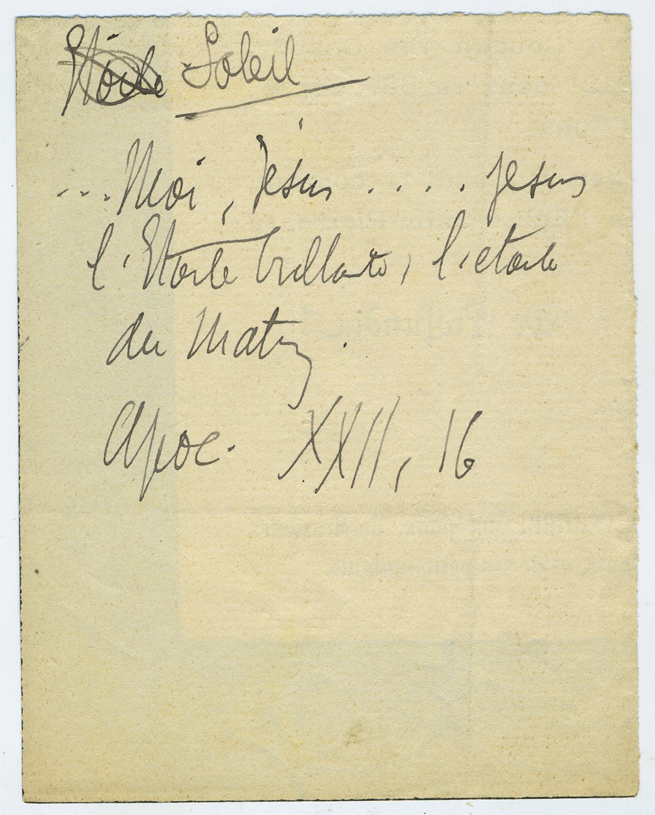 Etoile Soleil
... Moi, Jésus .... je suis
l'Etoile brillante, l'étoile
du Matin.
Apoc. XXII, 16